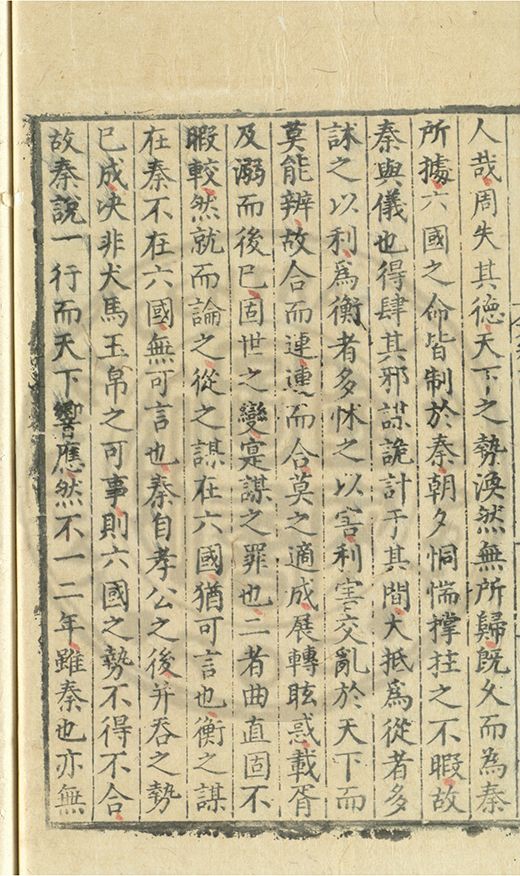 人哉周失其德天下之勢渙然無所歸既久而為秦
所據六國之命皆制於秦朝夕恫惴撐拄之不暇故
秦與儀也得肆其邪謀詭計于其間大抵為從者多
訹之以利為衡者多怵之以害利害交亂於天下而
莫能辨故合而連連而合莫之適成展轉眩惑載胥
及溺而後已固世之變寔謀之罪也二者曲直固不
暇較然就而論之從之謀在六國猶可言也衡之謀
在秦不在六國無可言也秦自孝公之後并吞之勢
已成决非犬馬玉帛之可事則六國之勢不得不合
故秦說一行而天下響應然不一二年雖秦也亦無